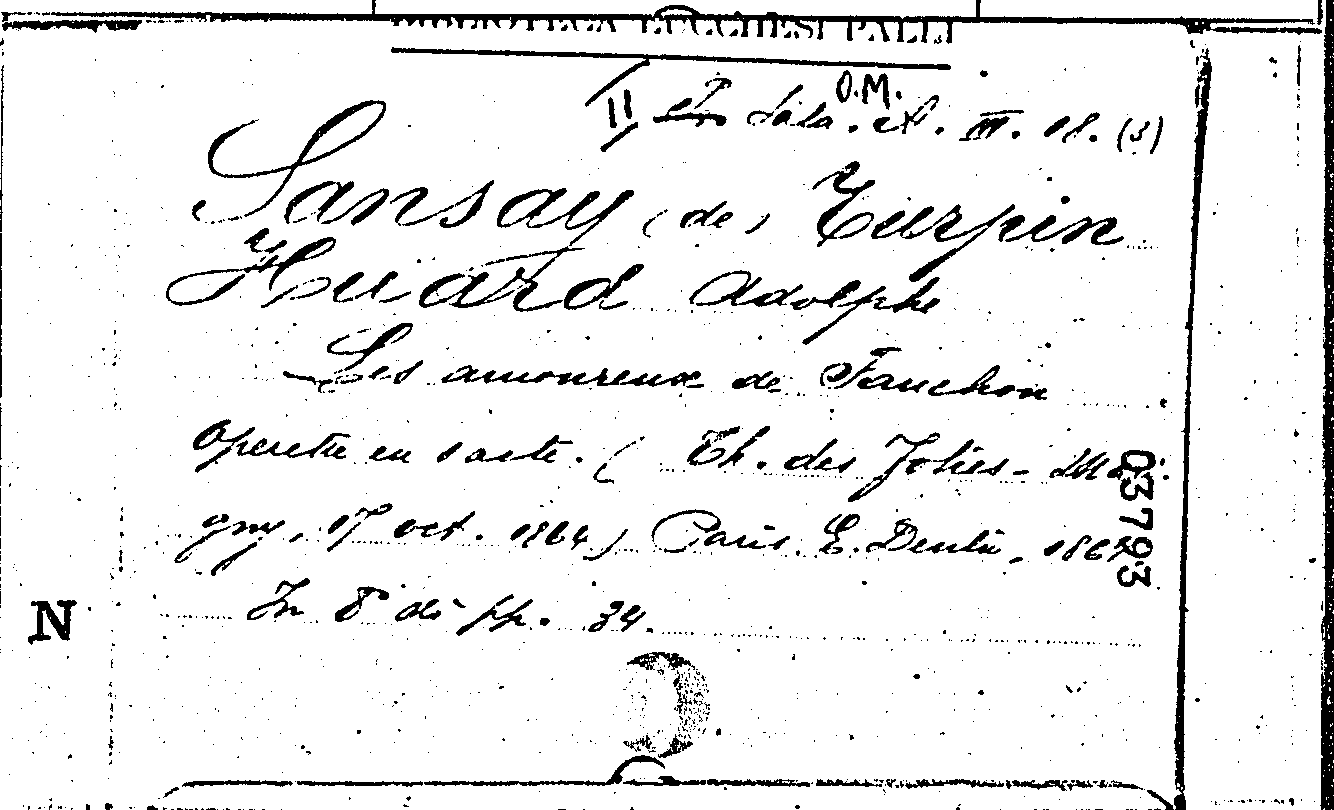 BIBLIOTECA LUCCHESI PALLI
O.M.
II Sala. III. 18. (3)
Sansay (de) Turpin
y Huard Adolphe
Les amoureux de Fanchon
operette en 1 acte. (Th. des Folies-Mari-
gny, 17 oct. 1864) Paris. E. Dentu, 1865
In 8° di pp. 34.
N
03793